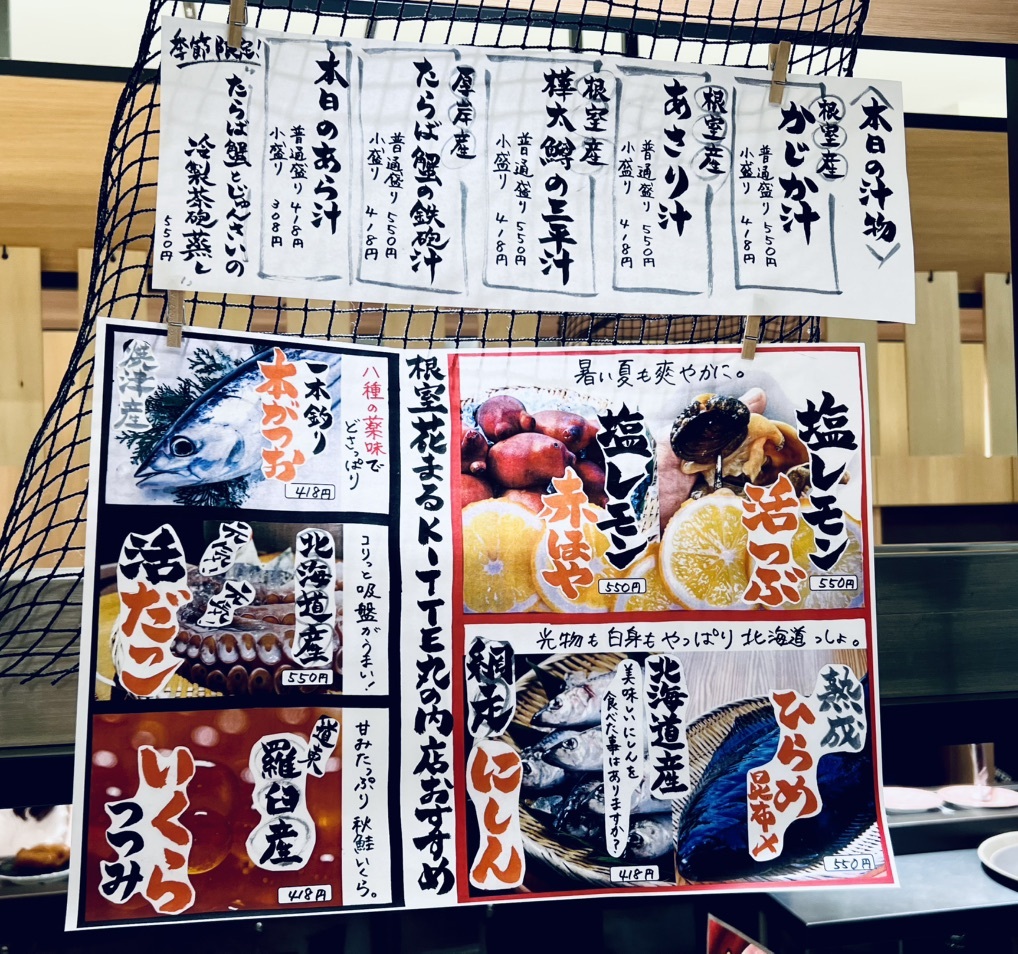 〈本日の汁物〉
根室産
かじか汁
普通盛り 550円
小盛り 418円
根室産
あさり汁
普通盛り 550円
小盛り 418円
根室産
樺太鱒の三平汁
普通盛り 550円
小盛り 418円
厚岸産
たらば蟹の鉄砲汁
普通盛り 550円
小盛り 418円
本日のあら汁
普通盛り 418円
小盛り 308円
季節限定!
たらば蟹とじゅんさいの
冷製茶碗蒸し
550円
暑い夏も爽やかに。
塩レモン
活つぶ
550円
塩レモン
赤ほや
550円
光物も白身もやっぱり北海道っしょ。
熟成
ひらめ
昆布〆
550円
北海道産
美味しいにしんを
食べた事はありますか?
網走
にしん
418円
根室花まるKITTE丸の内店おすすめ
八種の薬味で
どさっぱり
一本釣り
本がつお
焼津産
418円
コリっと吸盤がうまい!
北海道産
元気!
元気!
活だこ
550円
甘みたっぷり 秋鮭いくら。
道東
羅臼産
いくら
つつみ
418円